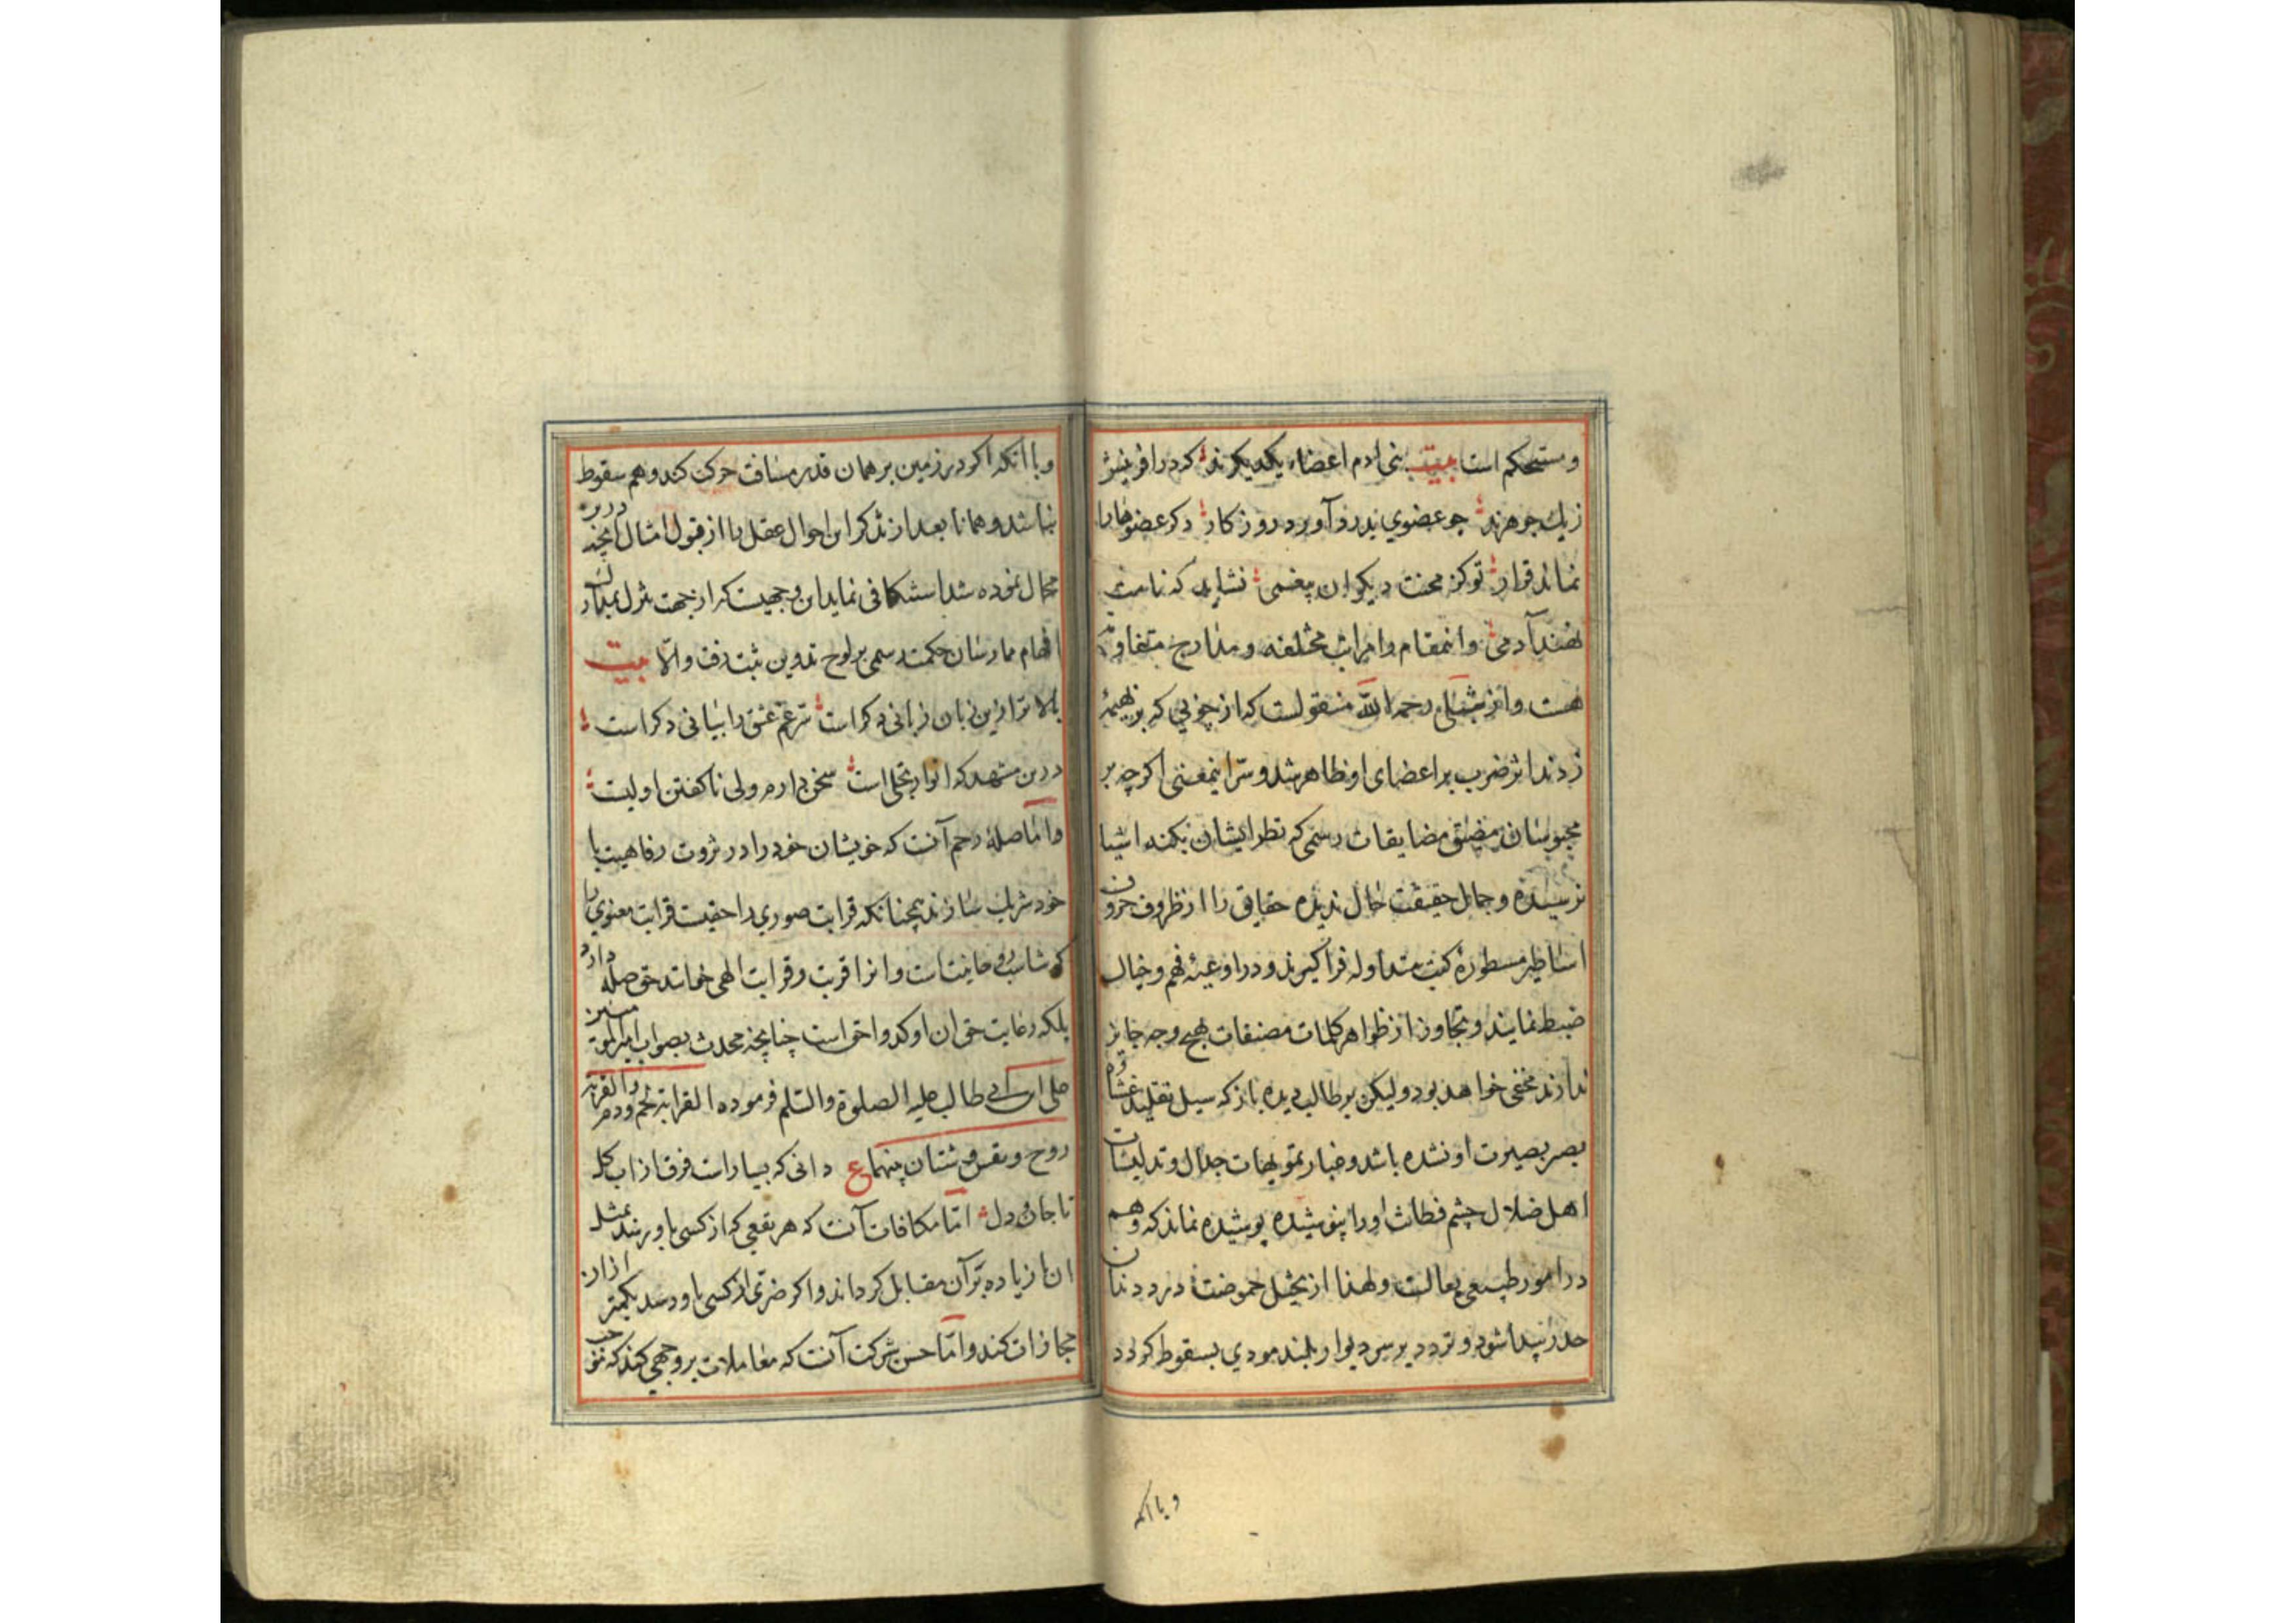 و مستحکم است بیت بنی ادم اعضاء یکدیکرند که در افرینش
زیک جوهرند چو عضوی بدرد آورد روزکار دکر عضوها را
نماند قرار تو کز محنت دیکران بیغمی نشاید که نامت
نهند آدمی و اینمقام را مراتب مختلفه و مدارج متفاوته
هست و از شبلی رحمه الله منقولست که از چوبی که بر بهیمهٔ
زدند اثر ضرب بر اعضای او ظاهر شد و سرّ اینمعنی اکرچه بر
محبوسان مضیق مضایقات رسمی که نظر ایشان بکنه اشیا
نرسیده و جمال حقیقت حال ندیده حقایق را از ظروف حروف
اساطیر مسطورهٔ کتب متداوله فرا کیرند و در اوعیهٔ فهم و خیال
ضبط نمایند و تجاوز از ظواهر کلمات مصنفات بهیچ وجه جایز
ندارند مخفی خواهد بود ولیکن بر طالب دیده باز که سبل تقلید غشاوهٔ
بصر بصیرت او نشده باشد و غبار تمویهات جدال و تدلیسات
اهل ضلال چشم فطانت او را نپوشیده پوشیده نماند که وهم
در امور طبیعی فعالست و لهذا از تخیل حموضت درد دندان
حذر پیدا شود و تردد بر سر دیوار بلند مودی بسقوط کردد
و با انکه
و با آنکه اکر در زمین بر همان قدر مسافت حرکت کند وهم سقوط
نباشد و همانا بعد از تذکر این احوال عقل را از قبول امثال انچه درین
محال نموده شد استنکافی نماید این وجهیست که از جهت تنزل بمدارک
افهام ممارسان حکمت رسمی بر لوح تدوین ثبت رفت و الّا بیت
بالاتر ازین زبان زبانی دکر است سرّ غم عشق را بیانی دکر است
درین مشهد که انوار تجلی است سخن دارم ولی ناکفتن اولیست
و امّا صلهٔ رحم آنست که خویشان خود را در ثروت رفاهیت با
خود شریک سازند همچنانکه قرابت صوری را حقیست قرابت معنوی را
که تناسب روحانیتست و انرا قربت و قرابت الهی خوانند حق صله دارد
بلکه رعایت حق ان اوکد و احق است چنانچه محدث بصواب امیرالمؤمنین
علی ابن ابی طالب علیه الصلوة والسّلم فرموده القرابة لحم و دم والقرابة
روح و نفس و شتان بینهما ع دانی که بسیارست فرق از اب کل
تا جان و دل امّا مکافات آنست که هر نفعی که از کسی باو رسد بمثل
ان یا زیاده بر آن مقابل کرداند و اکر ضرری از کسی باو رسد بکمتر از ان
مجازات کند و امّا حسن شرکت آنست که معاملات بر وجهی کند که